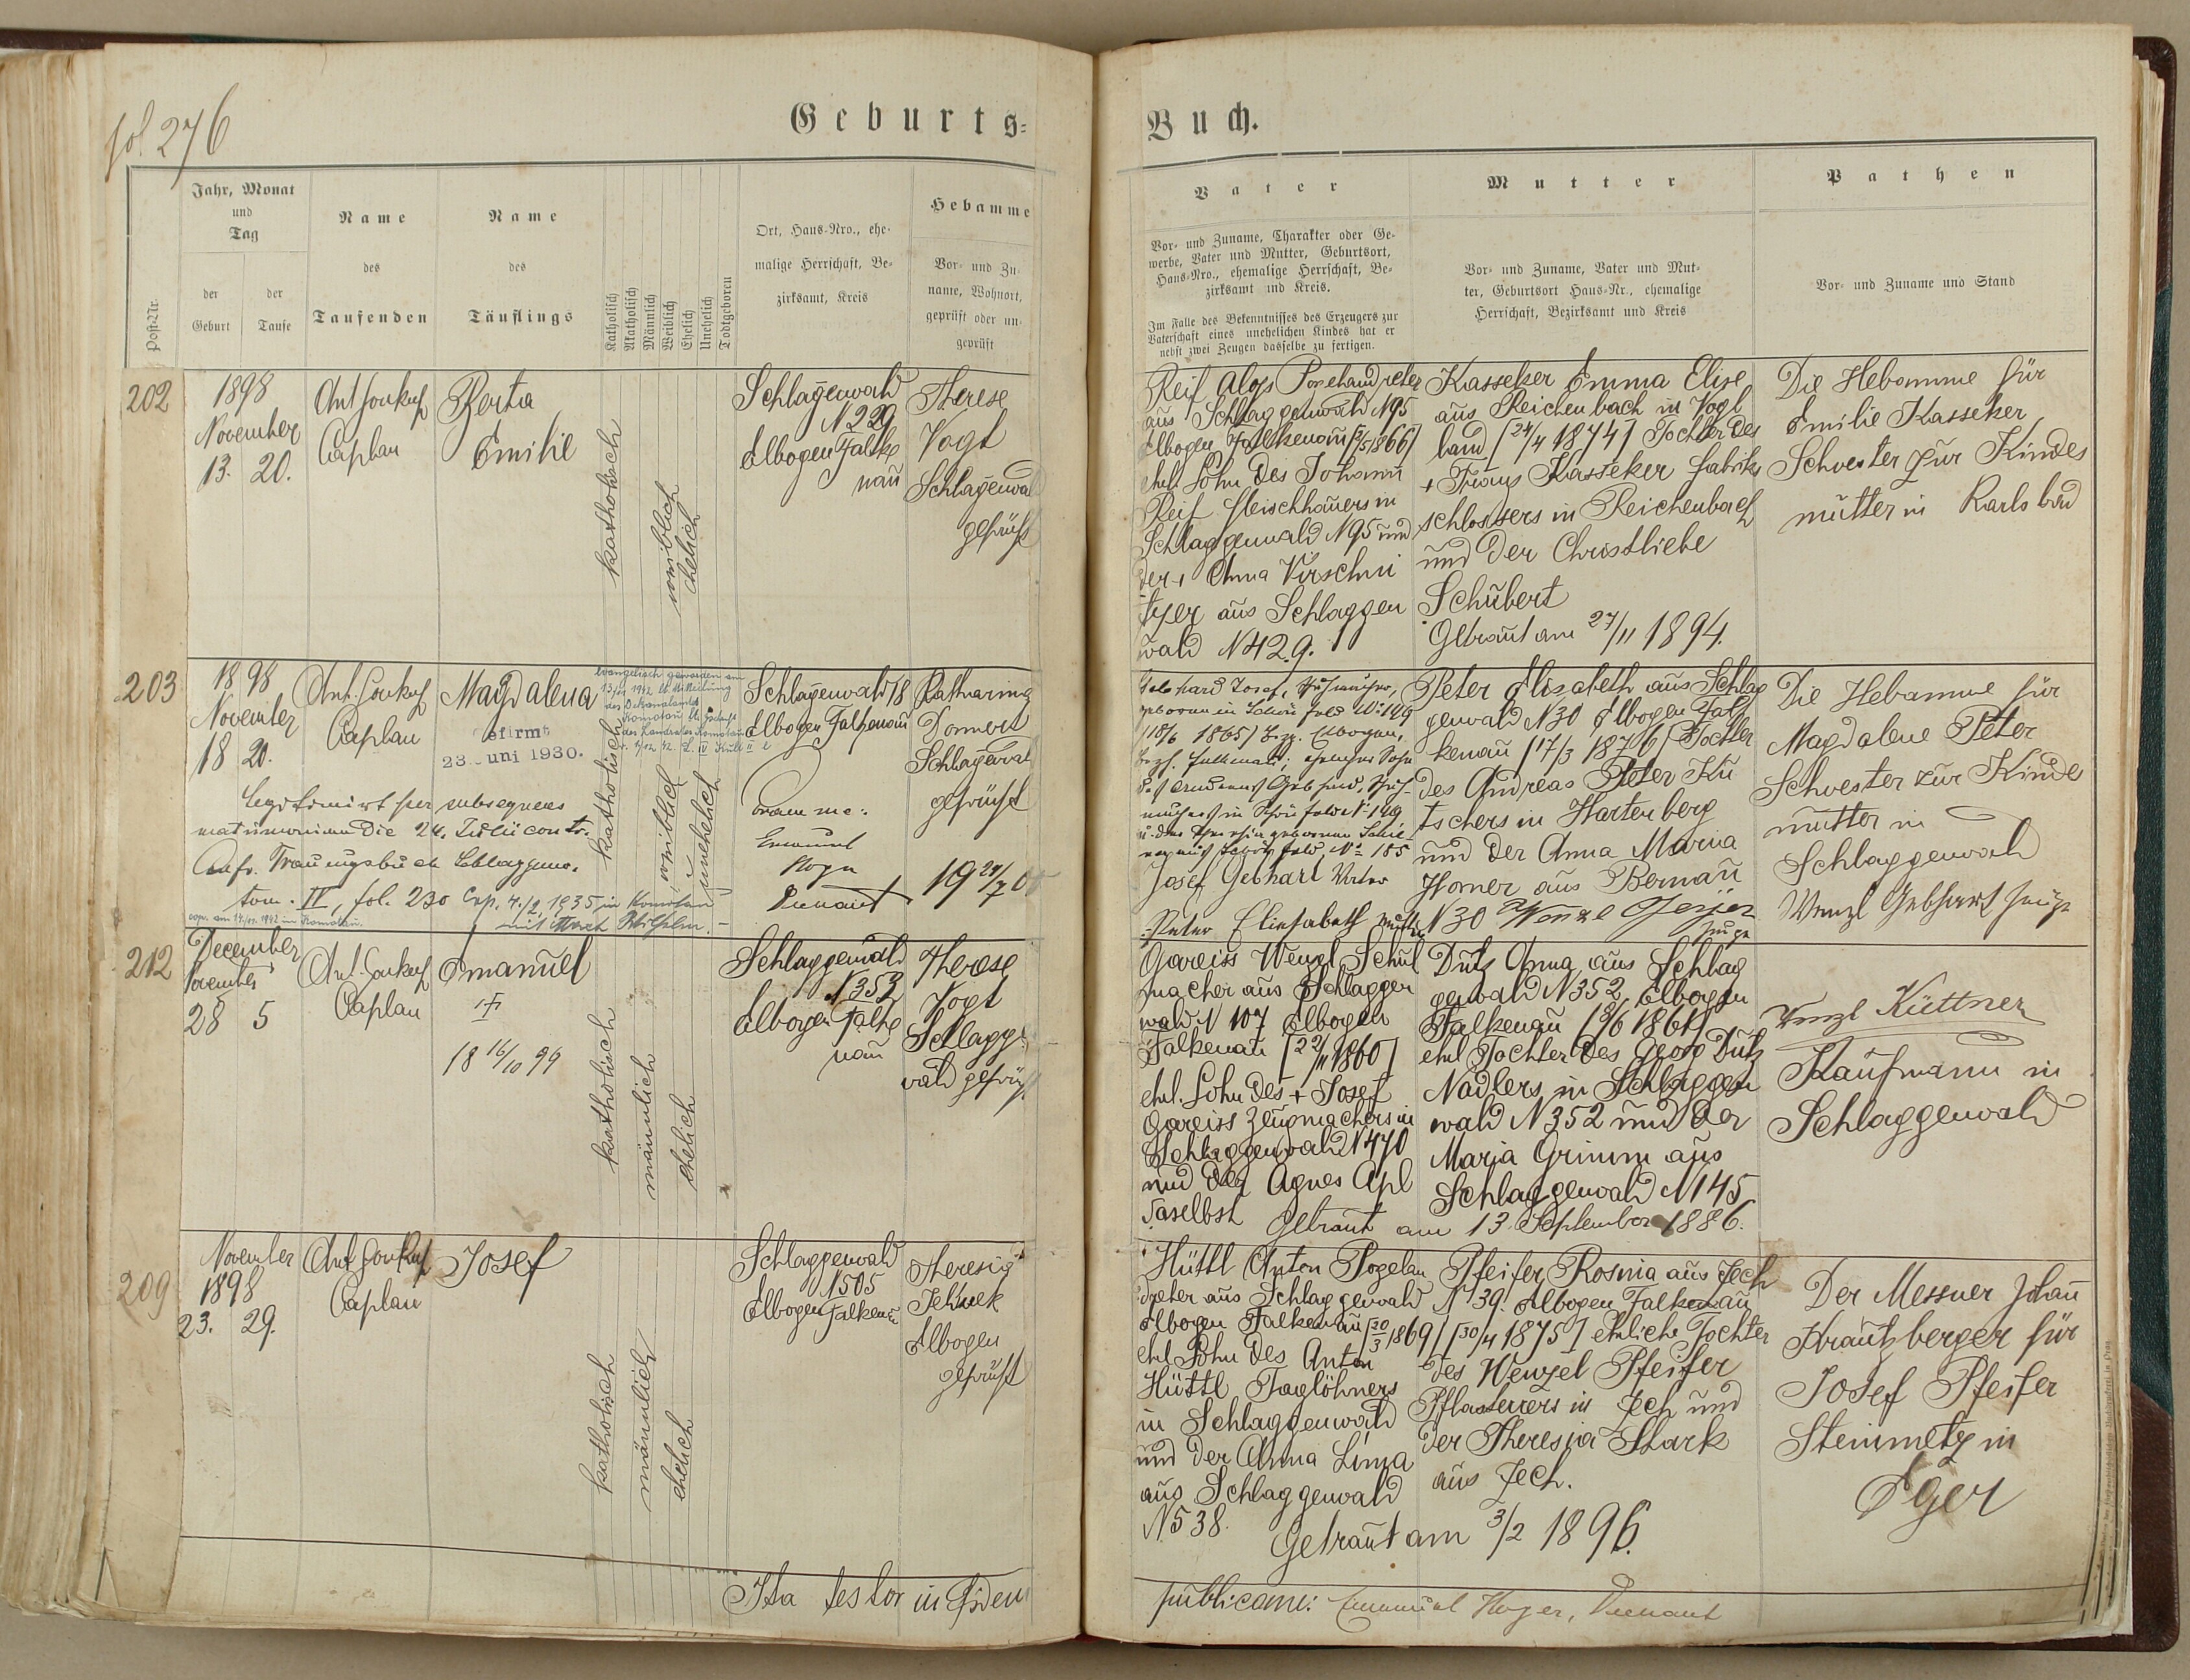 fol. 276
Geburts-
Buch.
Post-Nr.
Jahr, Monat
und
Tag
der
Geburt
der
Taufe
Name
des
Taufenden
Name
des
Täuflings
Katholisch
Akatholisch
Männlich
Weiblich
Ehelich
Unehelich
Todtgeboren
Ort, Haus-Nro., ehe-
malige Herrschaft, Be-
zirksamt, Kreis
Hebamme
Vor- und Zu-
name, Wohnort,
geprüft oder un-
geprüft
Vater
Vor- und Zuname, Charakter oder Ge-
werbe, Vater und Mutter, Geburtsort,
Haus-Nro., ehemalige Herrschaft, Be-
zirksamt und Kreis.
Im Falle des Bekenntnisses des Erzeugers zur
Vaterschaft eines unehelichen Kindes hat er
nebst zwei Zeugen dasselbe zu fertigen.
Mutter
Vor- und Zuname, Vater und Mut-
ter, Geburtsort Haus-Nr., ehemalige
Herrschaft, Bezirksamt und Kreis
Pathen
Vor- und Zuname und Stand
202
1898
November
13. 20.
Caplan
Berta
Emilie
katholisch
weiblich
ehelich
Schlaggenwald
N 229
Elbogen Falke
nau
Therese
Vogt
Schlaggenwal
geprüft
Reif Alois
aus Schlaggenwald N95
Elbogen Falkenau
ehel. Sohn des Johann
Reif Fleischhauers in
Schlaggenwald N95 und
der + Anna Virschni
tzer aus Schlaggen
wald N429.
Kasseker Emma Elise
aus Reichenbach in Vogt
land [24/4 1874] Tochter des
+ Franz Kasseker Fabriks
schlossers in Reichenbach
und der Christliebe
Schubert
Getraut am 27/11 1894.
Die Hebamme für
Emilie Kasseker
Schwester zur Kindes
mutter in Karlsbad
203
1898
November
18 20.
Caplan
Magdalena
gefirmt
23. Juni 1930.
Evangelisch geworden am
katholisch
weiblich
unehelich
Schlaggenwald 18
Elbogen Falkenau
Katharina
Schlaggenwal
geprüft
Legitimirt per subsequens
matrimonium die 24. Julii
Trauungsbuch Schlaggenw.
tom. IV, fol. 230 Cop. 4./2. 1935 in Komotau
coram me:
Emanuel
Hoyer
Dechant
19 24/7 05
Gebhard Josef,
geboren in Schönfeld N. 149
Josef Gebhart Vater
Peter Eliesabeth Mutter
Peter Elisabeth aus Schlag
genwald N30 Elbogen Fal
kenau [17/3 1876] Tochter
des Andreas Peter Ku
tschers in Hartenberg
und der Anna Maria
Horner aus Bernau
N30
Zeuge
Die Hebamme für
Magdalene Peter
Schwester zur Kinds
mutter in
Schlaggenwald
Wenzl Gebhart Zeuge
212
December
November
28 5
Caplan
Emanuel
+
18 16/10 99
katholisch
männlich
ehelich
Schlaggenwald
N 353
Elbogen Falke
nau
Therese
Vogt
Schlagge
wald geprüft
Gareiss Wenzl Schul
macher aus Schlaggen
wald N 107 Elbogen
Falkenau [22/11 1860]
ehel. Sohn des + Josef
Gareiss Zeugmachers in
Schlaggenwald N470
und der Agnes Apl
daselbst
Dutz Anna aus Schlag
genwald N352 Elbogen
Falkenau [8/6 1861]
ehel Tochter des Georg Dutz
Nadlers in Schlaggen
wald N352 und der
Maria Grimm aus
Schlaggenwald N145
Getraut am 13. September 1886.
Wenzl Küttner
Kaufmann in
Schlaggenwald
209
November
1898
23. 29.
Caplan
Josef
katholisch
männlich
ehelich
Schlaggenwald
N505
Elbogen Falkenau
Theresia
Elbogen
geprüft
Hüttl Anton Pozelan
dreher aus Schlaggenwald
Elbogen Falkenau [20/3 1869]
ehel Sohn des Anton
Hüttl Taglöhners
in Schlaggenwald
und der Anna Linza
aus Schlaggenwald
N538.
Pfeifer Rosina aus Zech
N 39. Elbogen Falkenau
[30/4 1875] eheliche Tochter
des Wenzel Pfeifer
Pflasterers in Zech und
der Theresia Stark
aus Zech.
Getraut am 3/2 1896.
Der Messner Johan
Krautzberger für
Josef Pfeifer
Steinmetz in
Eger
Ita testor in fidem
publicam: Emanuel Hoyer, Dechant